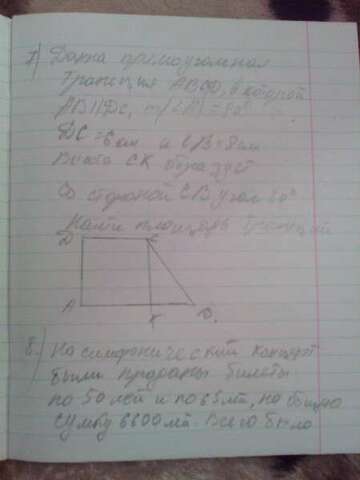 7) Данна прямоугольная
трапеция ABCD, в которой
AB||DC, m(∠A)=90°
DC=6см а CB=8см
Высота CK образует
Со стороной CB угол 30°
Найти площадь трапеции
D C
A K B
8) На симфонический концерт
были проданы билеты
по 50 лей и по 65 лей, на общую
сумму 6600 лей. Всего было